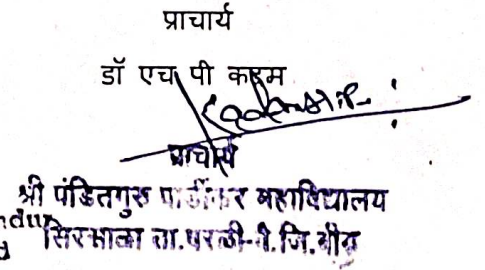 प्राचार्य
डॉ एच पी कदम
प्राचार्य
श्री पंडितगुरु पार्डीकर महाविद्यालय
सिरसाळा ता.परळी-वै.जि.बीड